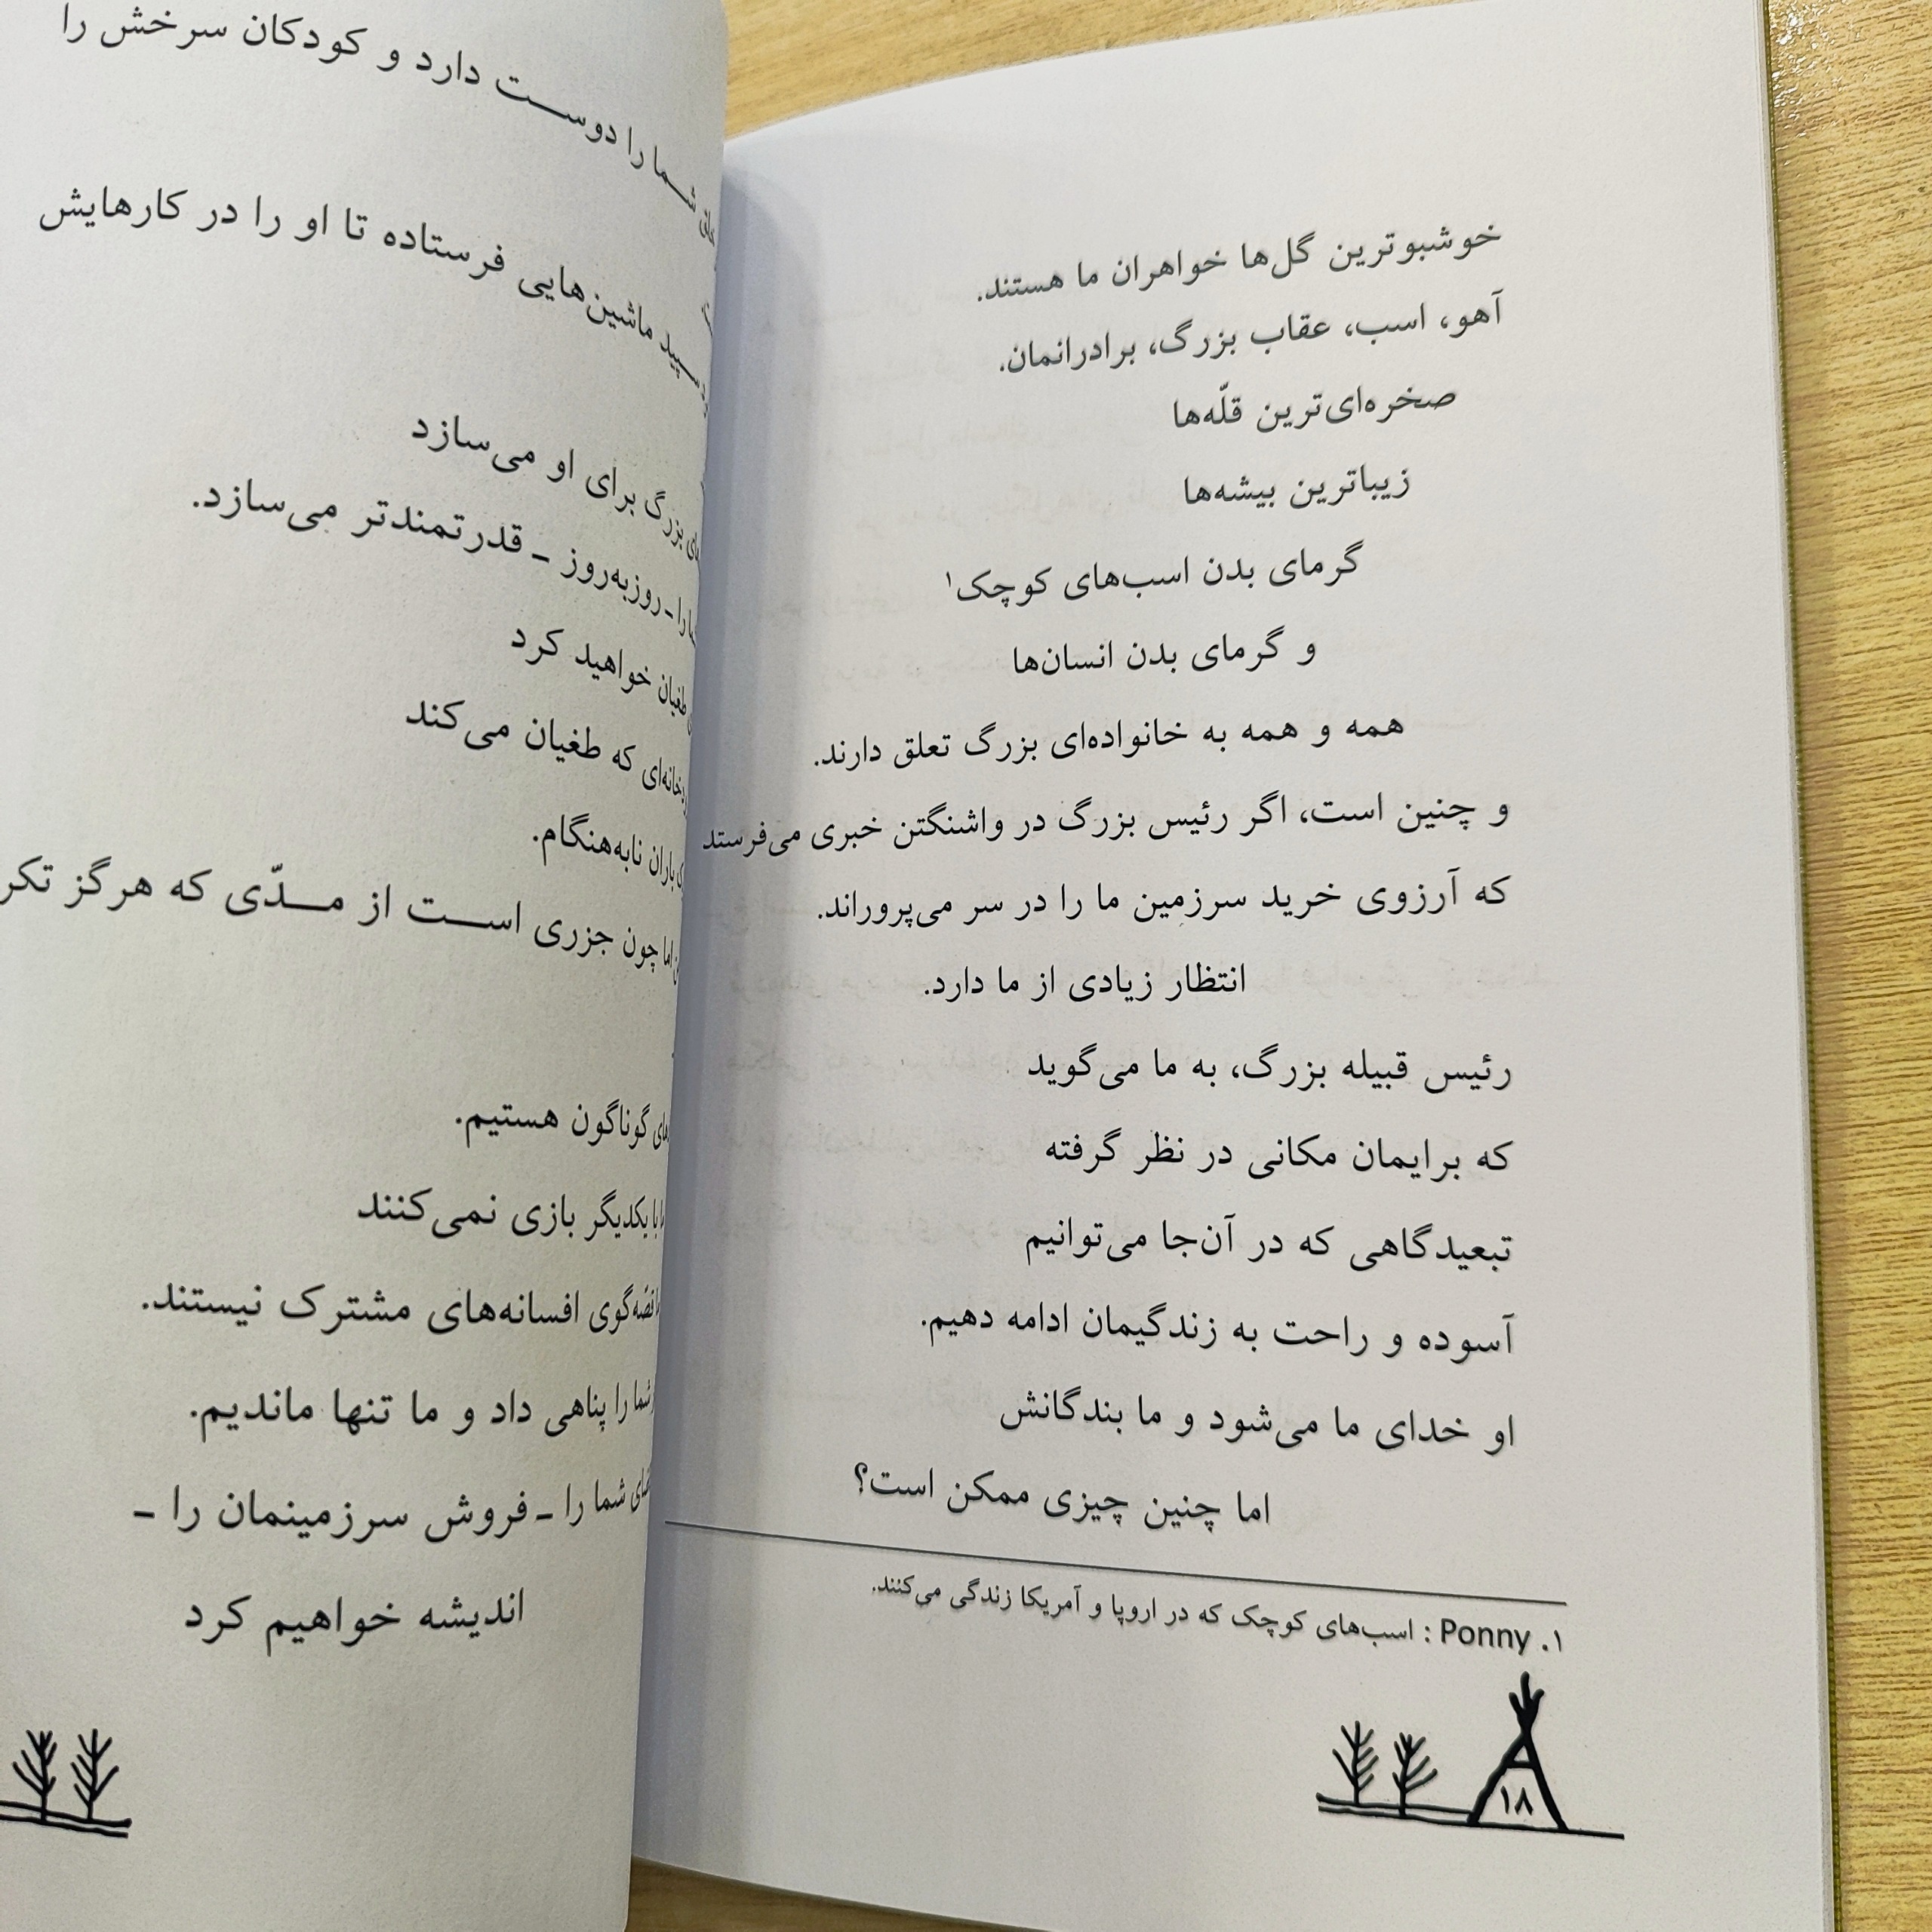 خوشبوترین گل‌ها خواهران ما هستند.
آهو، اسب، عقاب بزرگ، برادرانمان.
صخره‌ای‌ترین قلّه‌ها
زیباترین بیشه‌ها
گرمای بدن اسب‌های کوچک۱
و گرمای بدن انسان‌ها
همه و همه به خانواده‌ای بزرگ تعلق دارند.
و چنین است، اگر رئیس بزرگ در واشنگتن خبری می‌فرستد
که آرزوی خرید سرزمین ما را در سر می‌پروراند.
انتظار زیادی از ما دارد.
رئیس قبیله بزرگ، به ما می‌گوید
که برایمان مکانی در نظر گرفته
تبعیدگاهی که در آن‌جا می‌توانیم
آسوده و راحت به زندگیمان ادامه دهیم.
او خدای ما می‌شود و ما بندگانش
اما چنین چیزی ممکن است؟
۱. Ponny : اسب‌های کوچک که در اروپا و آمریکا زندگی می‌کنند.
۱۸
شما را دوست دارد و کودکان سرخش را
ماشین‌هایی فرستاده تا او را در کارهایش
بزرگ برای او می‌سازد
را ـ روزبه‌روز ـ قدرتمندتر می‌سازد.
طغیان خواهید کرد
که طغیان می‌کند
باران نابه‌هنگام.
اما چون جزری است از مدّی که هرگز
گوناگون هستیم.
با یکدیگر بازی نمی‌کنند
قصّه‌گوی افسانه‌های مشترک نیستند.
شما را پناهی داد و ما تنها ماندیم.
شما را ـ فروش سرزمینمان را ـ
اندیشه خواهیم کرد